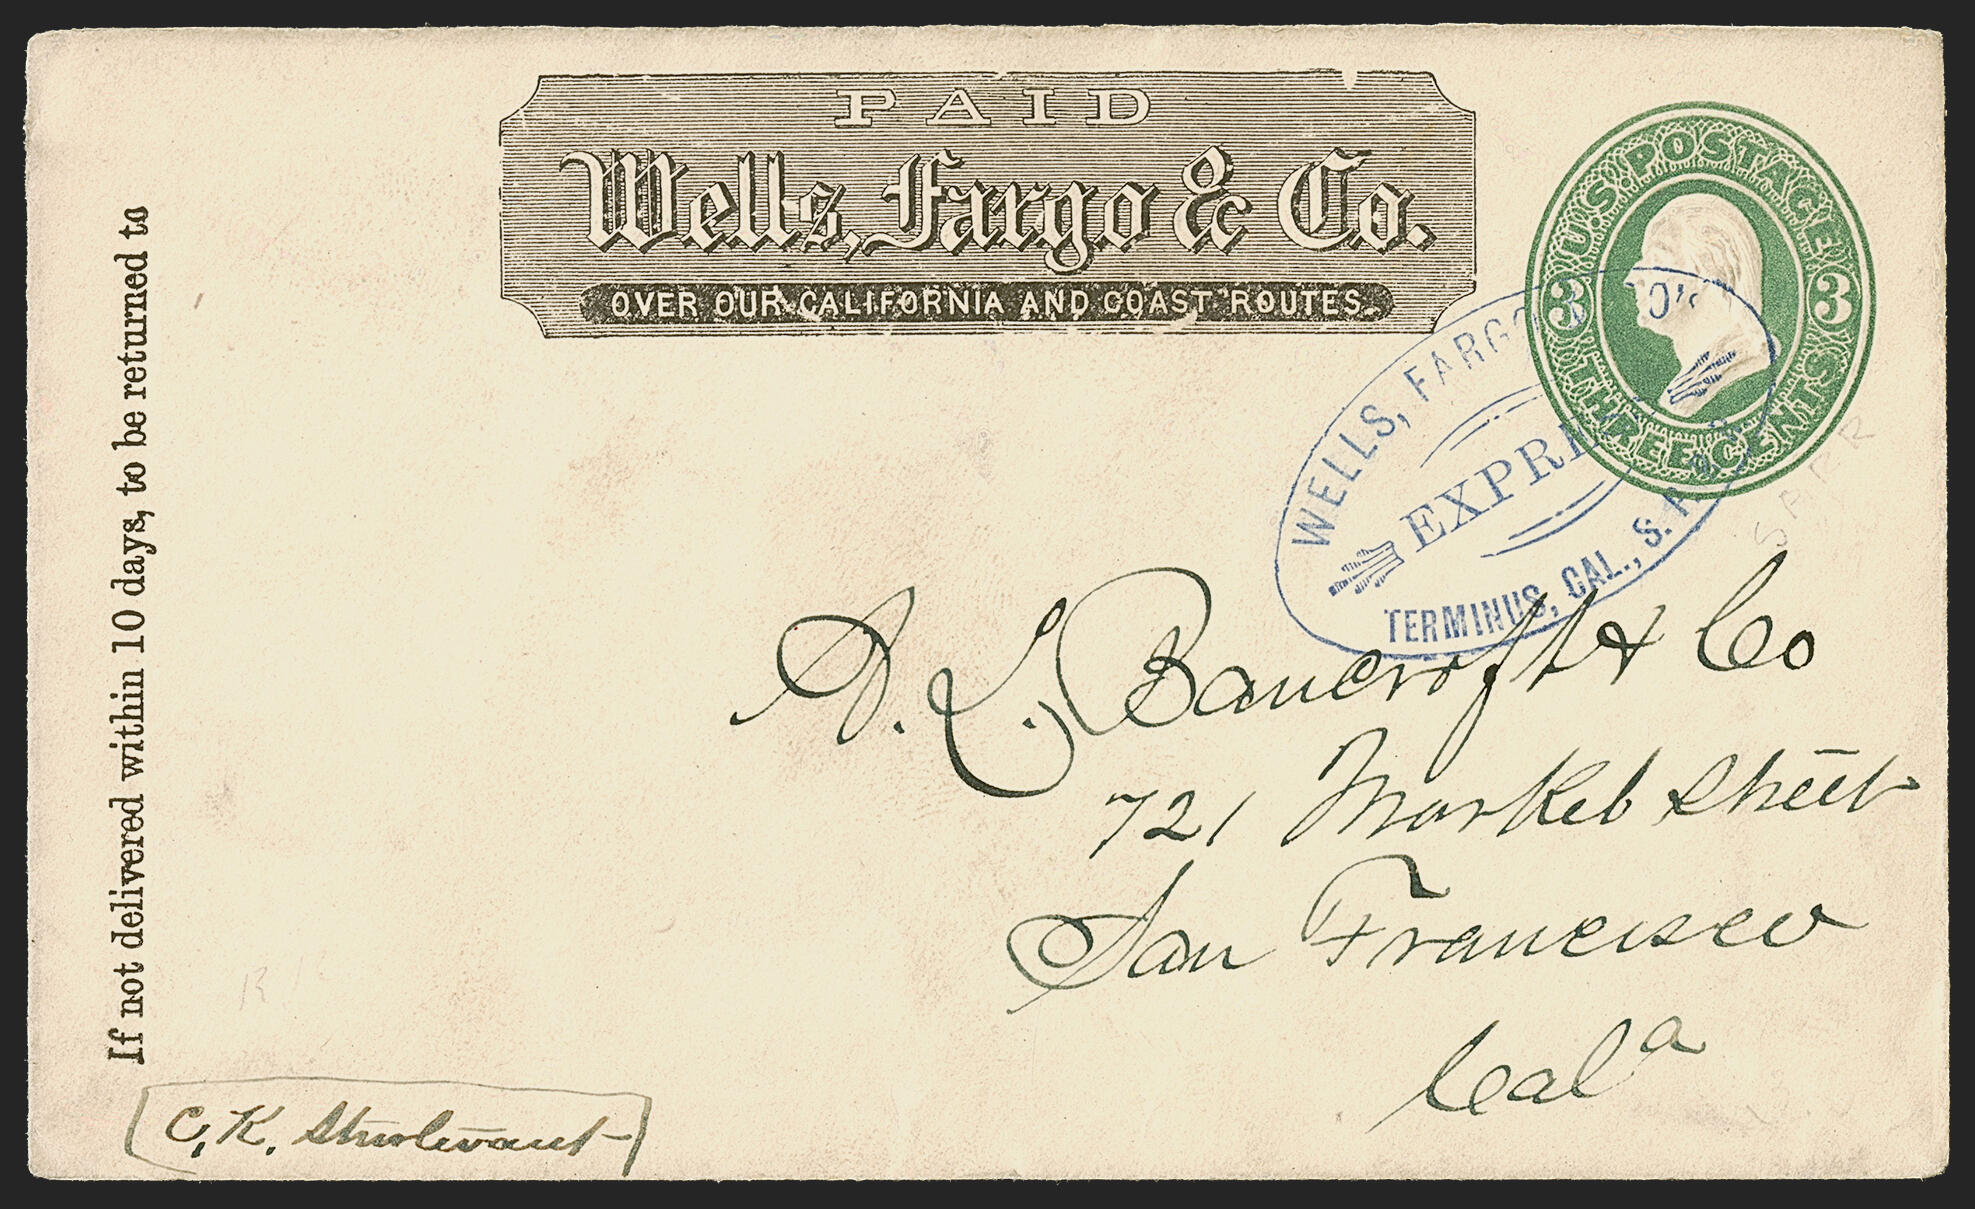 PAID
Wells, Fargo & Co.
OVER OUR CALIFORNIA AND COAST ROUTES.
U.S. POSTAGE
3 3
THREE CENTS
WELLS, FARGO & CO'S
EXPRESS
TERMINUS, CAL., S.P.R.R.
If not delivered within 10 days, to be returned to
A. L. Bancroft & Co
721 Market Street
San Francisco
Cala
C. K. Sturtevant